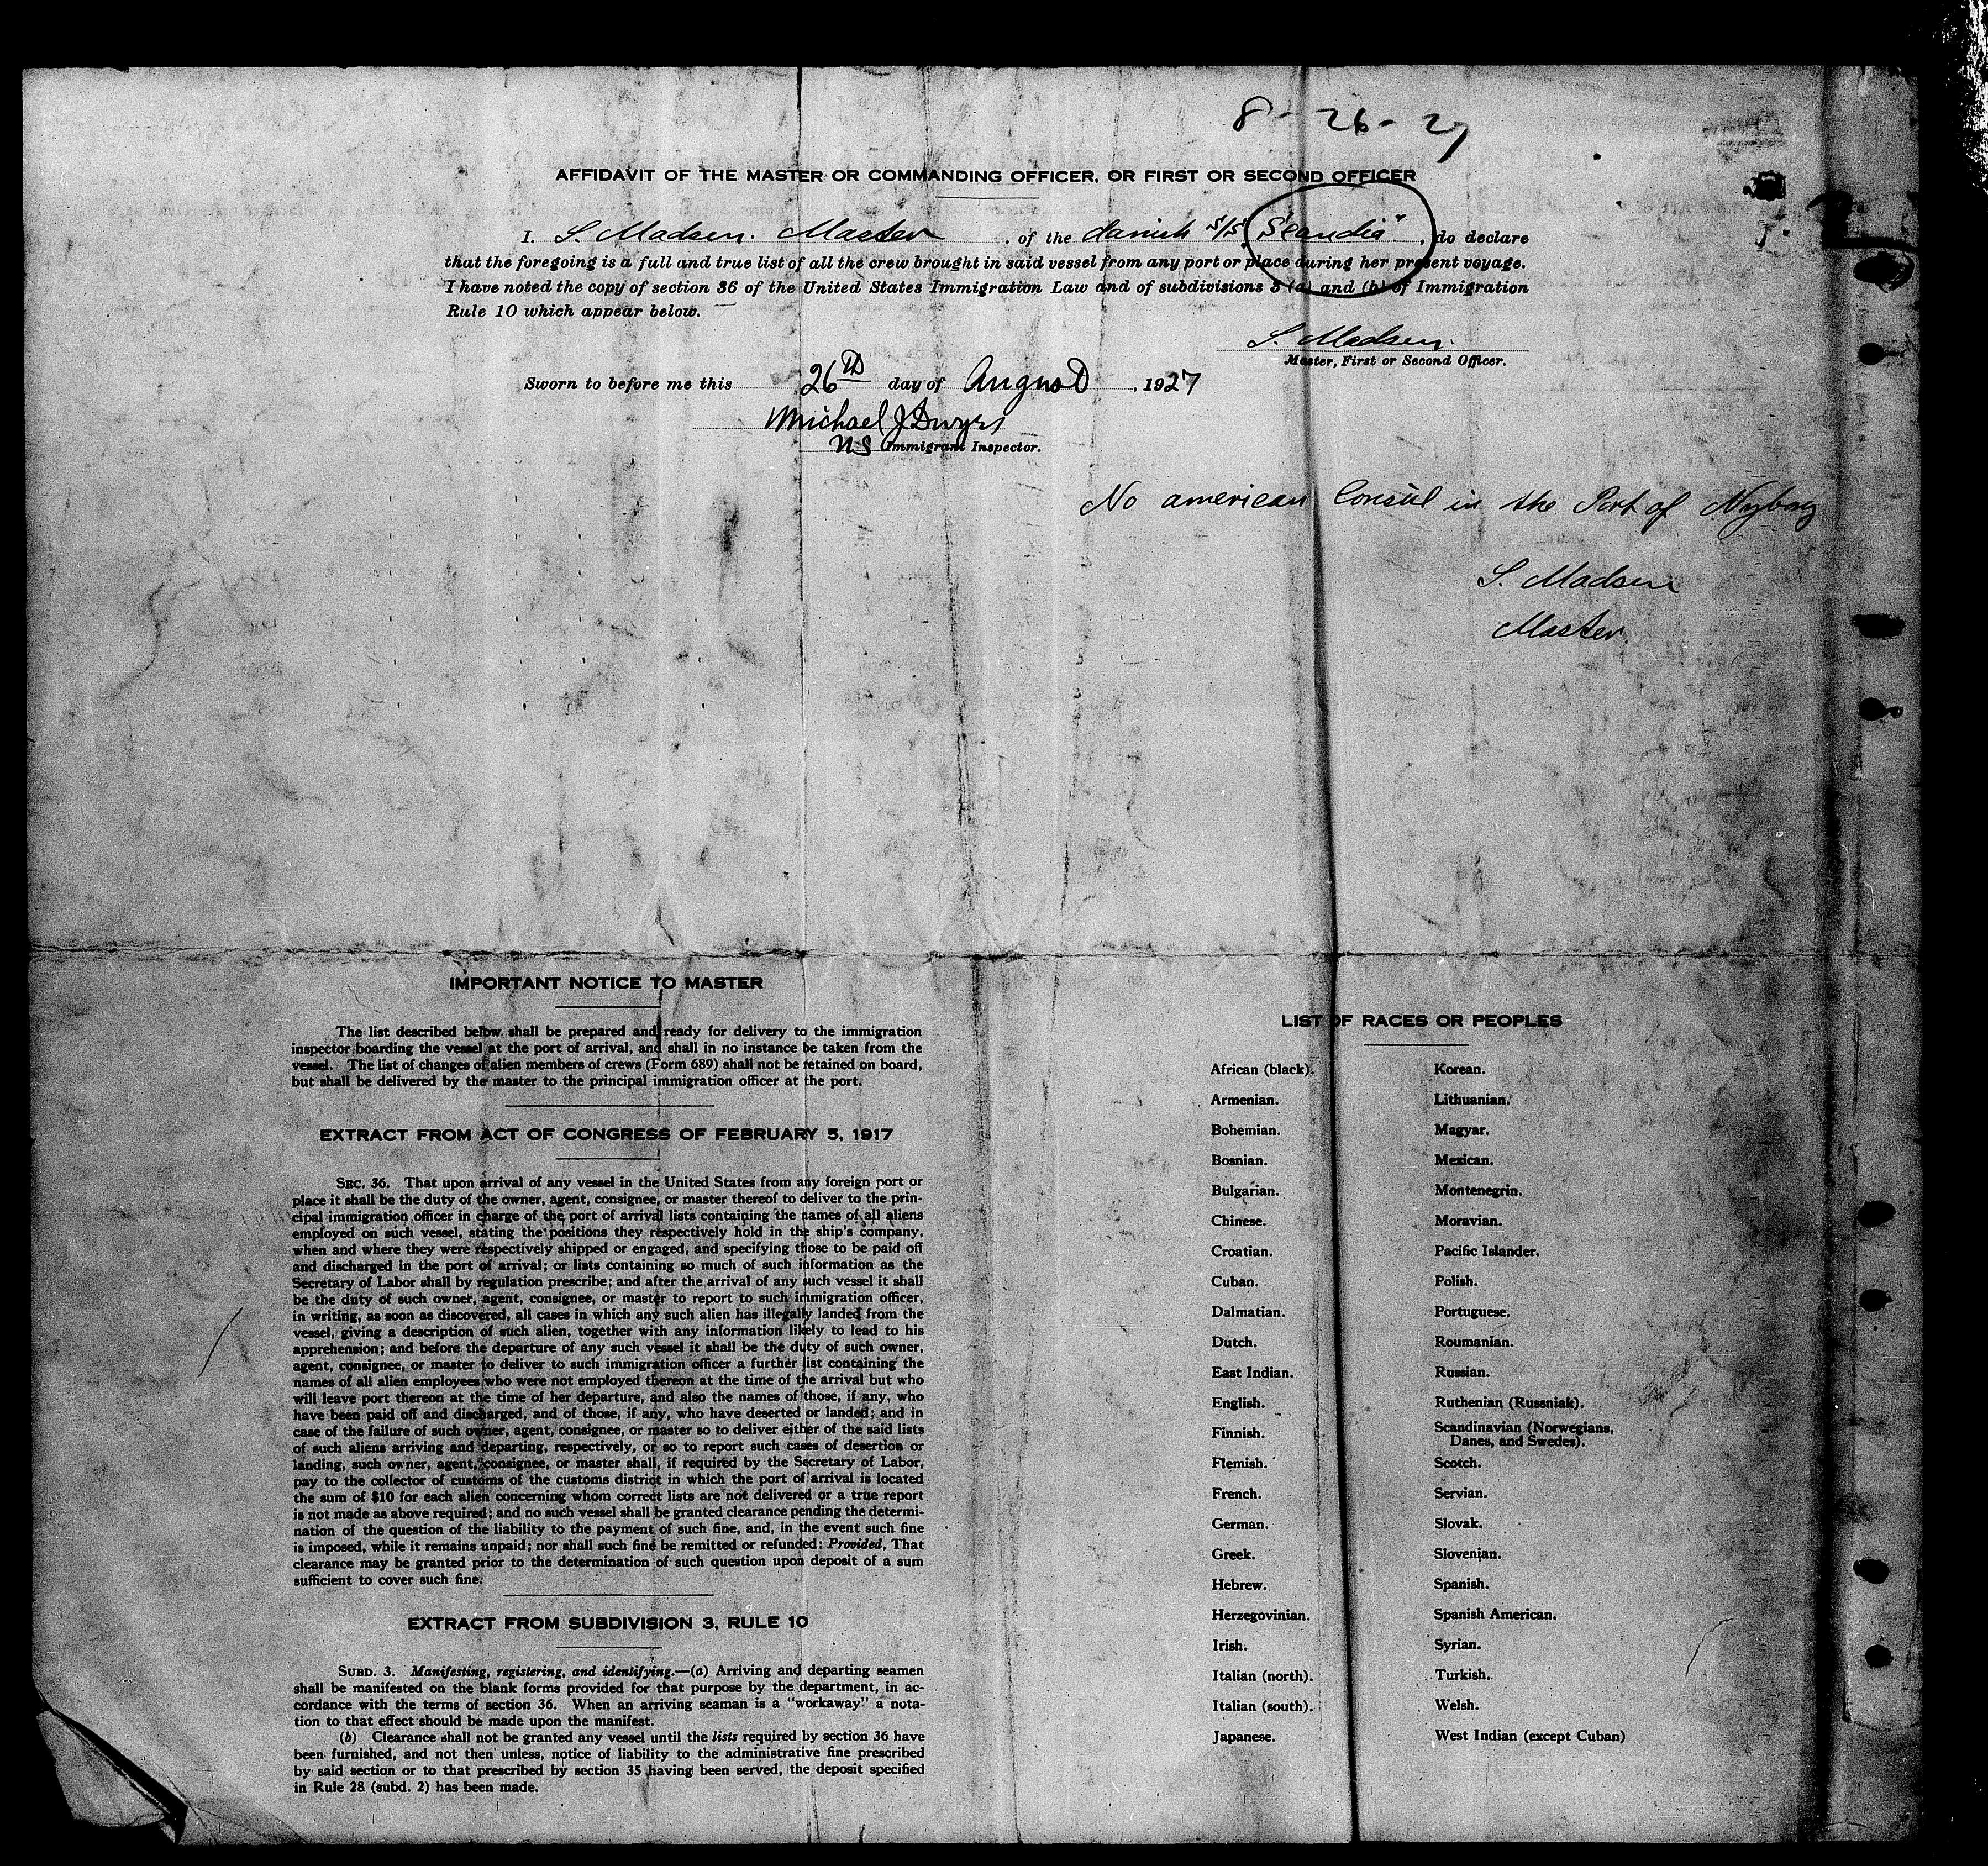 8 - 26 - 27
AFFIDAVIT OF THE MASTER OR COMMANDING OFFICER, OR FIRST OR SECOND OFFICER
I, S. Madsen. Master, of the danish S/S. "Scandia", do declare
that the foregoing is a full and true list of all the crew brought in said vessel from any port or place during her present voyage.
I have noted the copy of section 36 of the United States Immigration Law and of subdivisions 3 (a) and (b) of Immigration
Rule 10 which appear below.
S. Madsen.
Master, First or Second Officer.
Sworn to before me this 26th day of August, 1927
Michael J Dwyer
US Immigrant Inspector.
No american Consul in the Port of Nyborg
S. Madsen
Master.
IMPORTANT NOTICE TO MASTER
The list described below shall be prepared and ready for delivery to the immigration
inspector boarding the vessel at the port of arrival, and shall in no instance be taken from the
vessel. The list of changes of alien members of crews (Form 689) shall not be retained on board,
but shall be delivered by the master to the principal immigration officer at the port.
EXTRACT FROM ACT OF CONGRESS OF FEBRUARY 5, 1917
SEC. 36. That upon arrival of any vessel in the United States from any foreign port or
place it shall be the duty of the owner, agent, consignee, or master thereof to deliver to the prin-
cipal immigration officer in charge of the port of arrival lists containing the names of all aliens
employed on such vessel, stating the positions they respectively hold in the ship's company,
when and where they were respectively shipped or engaged, and specifying those to be paid off
and discharged in the port of arrival; or lists containing so much of such information as the
Secretary of Labor shall by regulation prescribe; and after the arrival of any such vessel it shall
be the duty of such owner, agent, consignee, or master to report to such immigration officer,
in writing, as soon as discovered, all cases in which any such alien has illegally landed from the
vessel, giving a description of such alien, together with any information likely to lead to his
apprehension; and before the departure of any such vessel it shall be the duty of such owner,
agent, consignee, or master to deliver to such immigration officer a further list containing the
names of all alien employees who were not employed thereon at the time of the arrival but who
will leave port thereon at the time of her departure, and also the names of those, if any, who
have been paid off and discharged, and of those, if any, who have deserted or landed; and in
case of the failure of such owner, agent, consignee, or master so to deliver either of the said lists
of such aliens arriving and departing, respectively, or so to report such cases of desertion or
landing, such owner, agent, consignee, or master shall, if required by the Secretary of Labor,
pay to the collector of customs of the customs district in which the port of arrival is located
the sum of $10 for each alien concerning whom correct lists are not delivered or a true report
is not made as above required; and no such vessel shall be granted clearance pending the determi-
nation of the question of the liability to the payment of such fine, and, in the event such fine
is imposed, while it remains unpaid; nor shall such fine be remitted or refunded: Provided, That
clearance may be granted prior to the determination of such question upon deposit of a sum
sufficient to cover such fine.
EXTRACT FROM SUBDIVISION 3, RULE 10
SUBD. 3. Manifesting, registering, and identifying.—(a) Arriving and departing seamen
shall be manifested on the blank forms provided for that purpose by the department, in ac-
cordance with the terms of section 36. When an arriving seaman is a "workaway" a nota-
tion to that effect should be made upon the manifest.
(b) Clearance shall not be granted any vessel until the lists required by section 36 have
been furnished, and not then unless, notice of liability to the administrative fine prescribed
by said section or to that prescribed by section 35 having been served, the deposit specified
in Rule 28 (subd. 2) has been made.
LIST OF RACES OR PEOPLES
African (black).
Armenian.
Bohemian.
Bosnian.
Bulgarian.
Chinese.
Croatian.
Cuban.
Dalmatian.
Dutch.
East Indian.
English.
Finnish.
Flemish.
French.
German.
Greek.
Hebrew.
Herzegovinian.
Irish.
Italian (north).
Italian (south).
Japanese.
Korean.
Lithuanian.
Magyar.
Mexican.
Montenegrin.
Moravian.
Pacific Islander.
Polish.
Portuguese.
Roumanian.
Russian.
Ruthenian (Russniak).
Scandinavian (Norwegians,
Danes, and Swedes).
Scotch.
Servian.
Slovak.
Slovenian.
Spanish.
Spanish American.
Syrian.
Turkish.
Welsh.
West Indian (except Cuban)